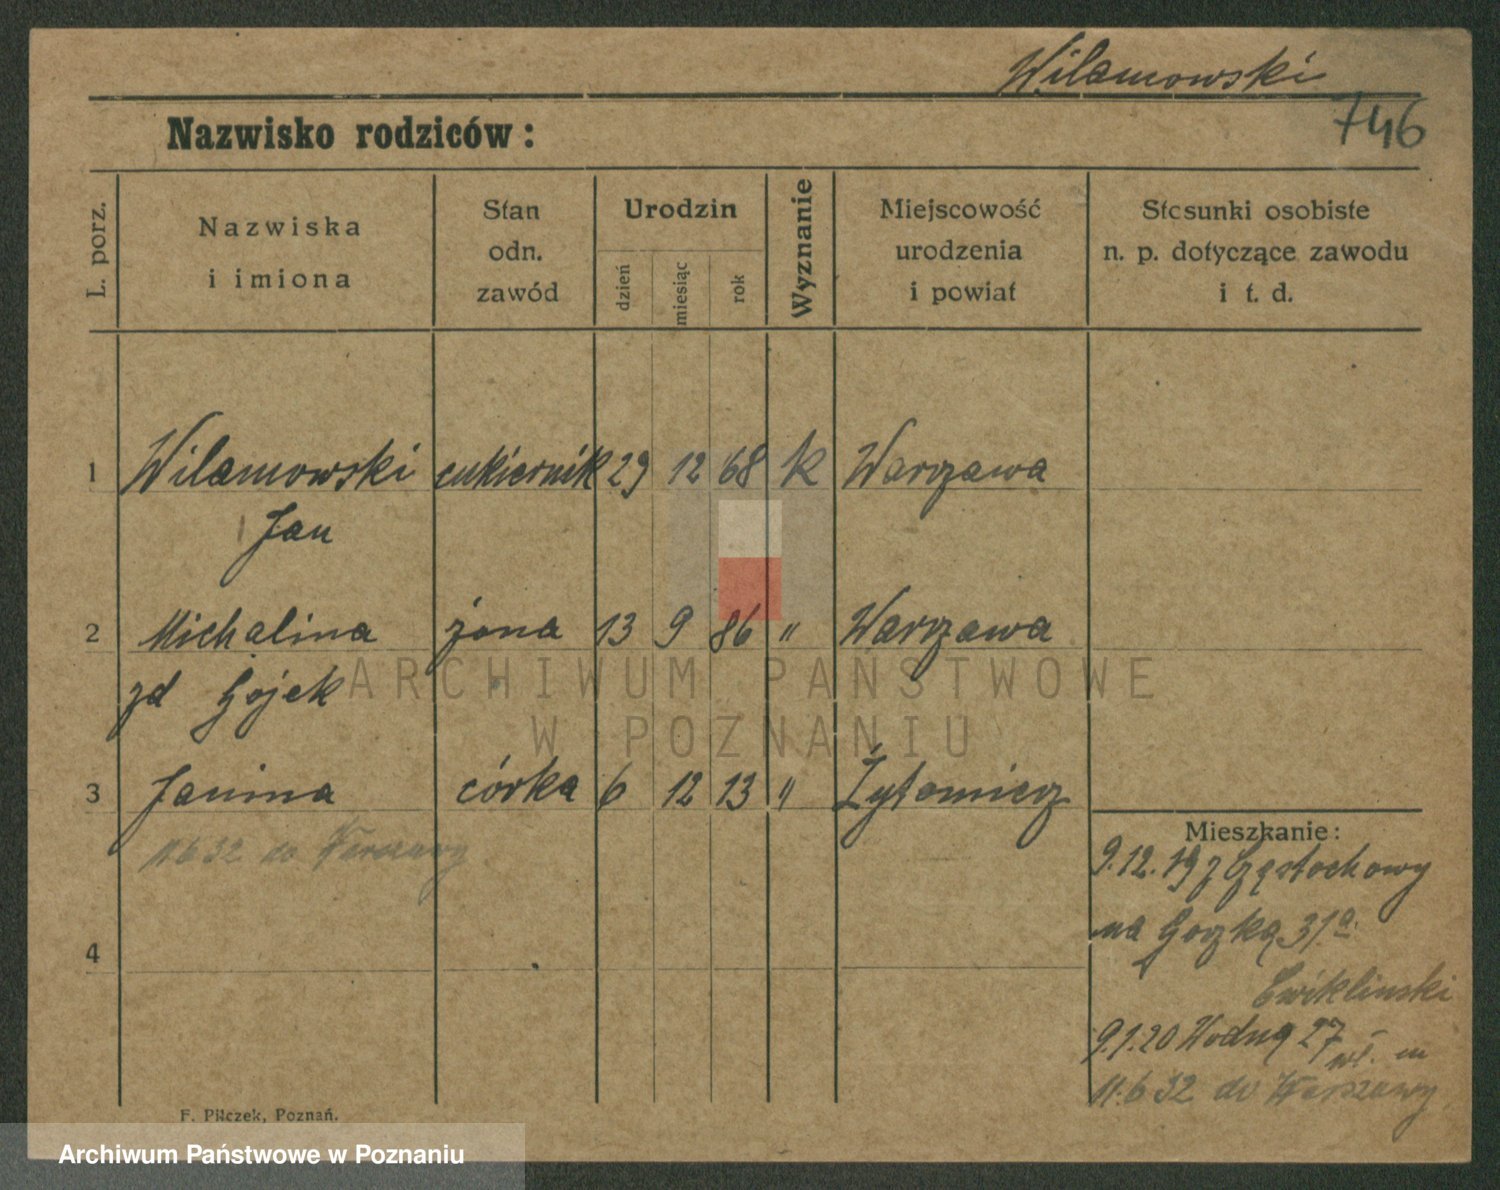 Wilamowski
746
Nazwisko rodziców:
L. porz.
Nazwiska
i imiona
Stan
odn.
zawód
Urodzin
dzień
miesiąc
rok
Wyznanie
Miejscowość
urodzenia
i powiat
Stosunki osobiste
n. p. dotyczące zawodu
i t. d.
1 Wilamowski cukiernik 29 12 68 k Warszawa
Jan
2 Michalina żona 13 9 86 " Warszawa
zd Gojek
3 Janina córka 6 12 13 " Żytomierz
11.6 32 do Warszawy
4
Mieszkanie:
9.12.19 z Częstochowy
na Gorzką 31a
Ćwikliński
9.1.20 Wodną 27
wł. m
11.6 32 do Warszawy
F. Pilczek, Poznań.
ARCHIWUM PAŃSTWOWE
W POZNANIU
Archiwum Państwowe w Poznaniu